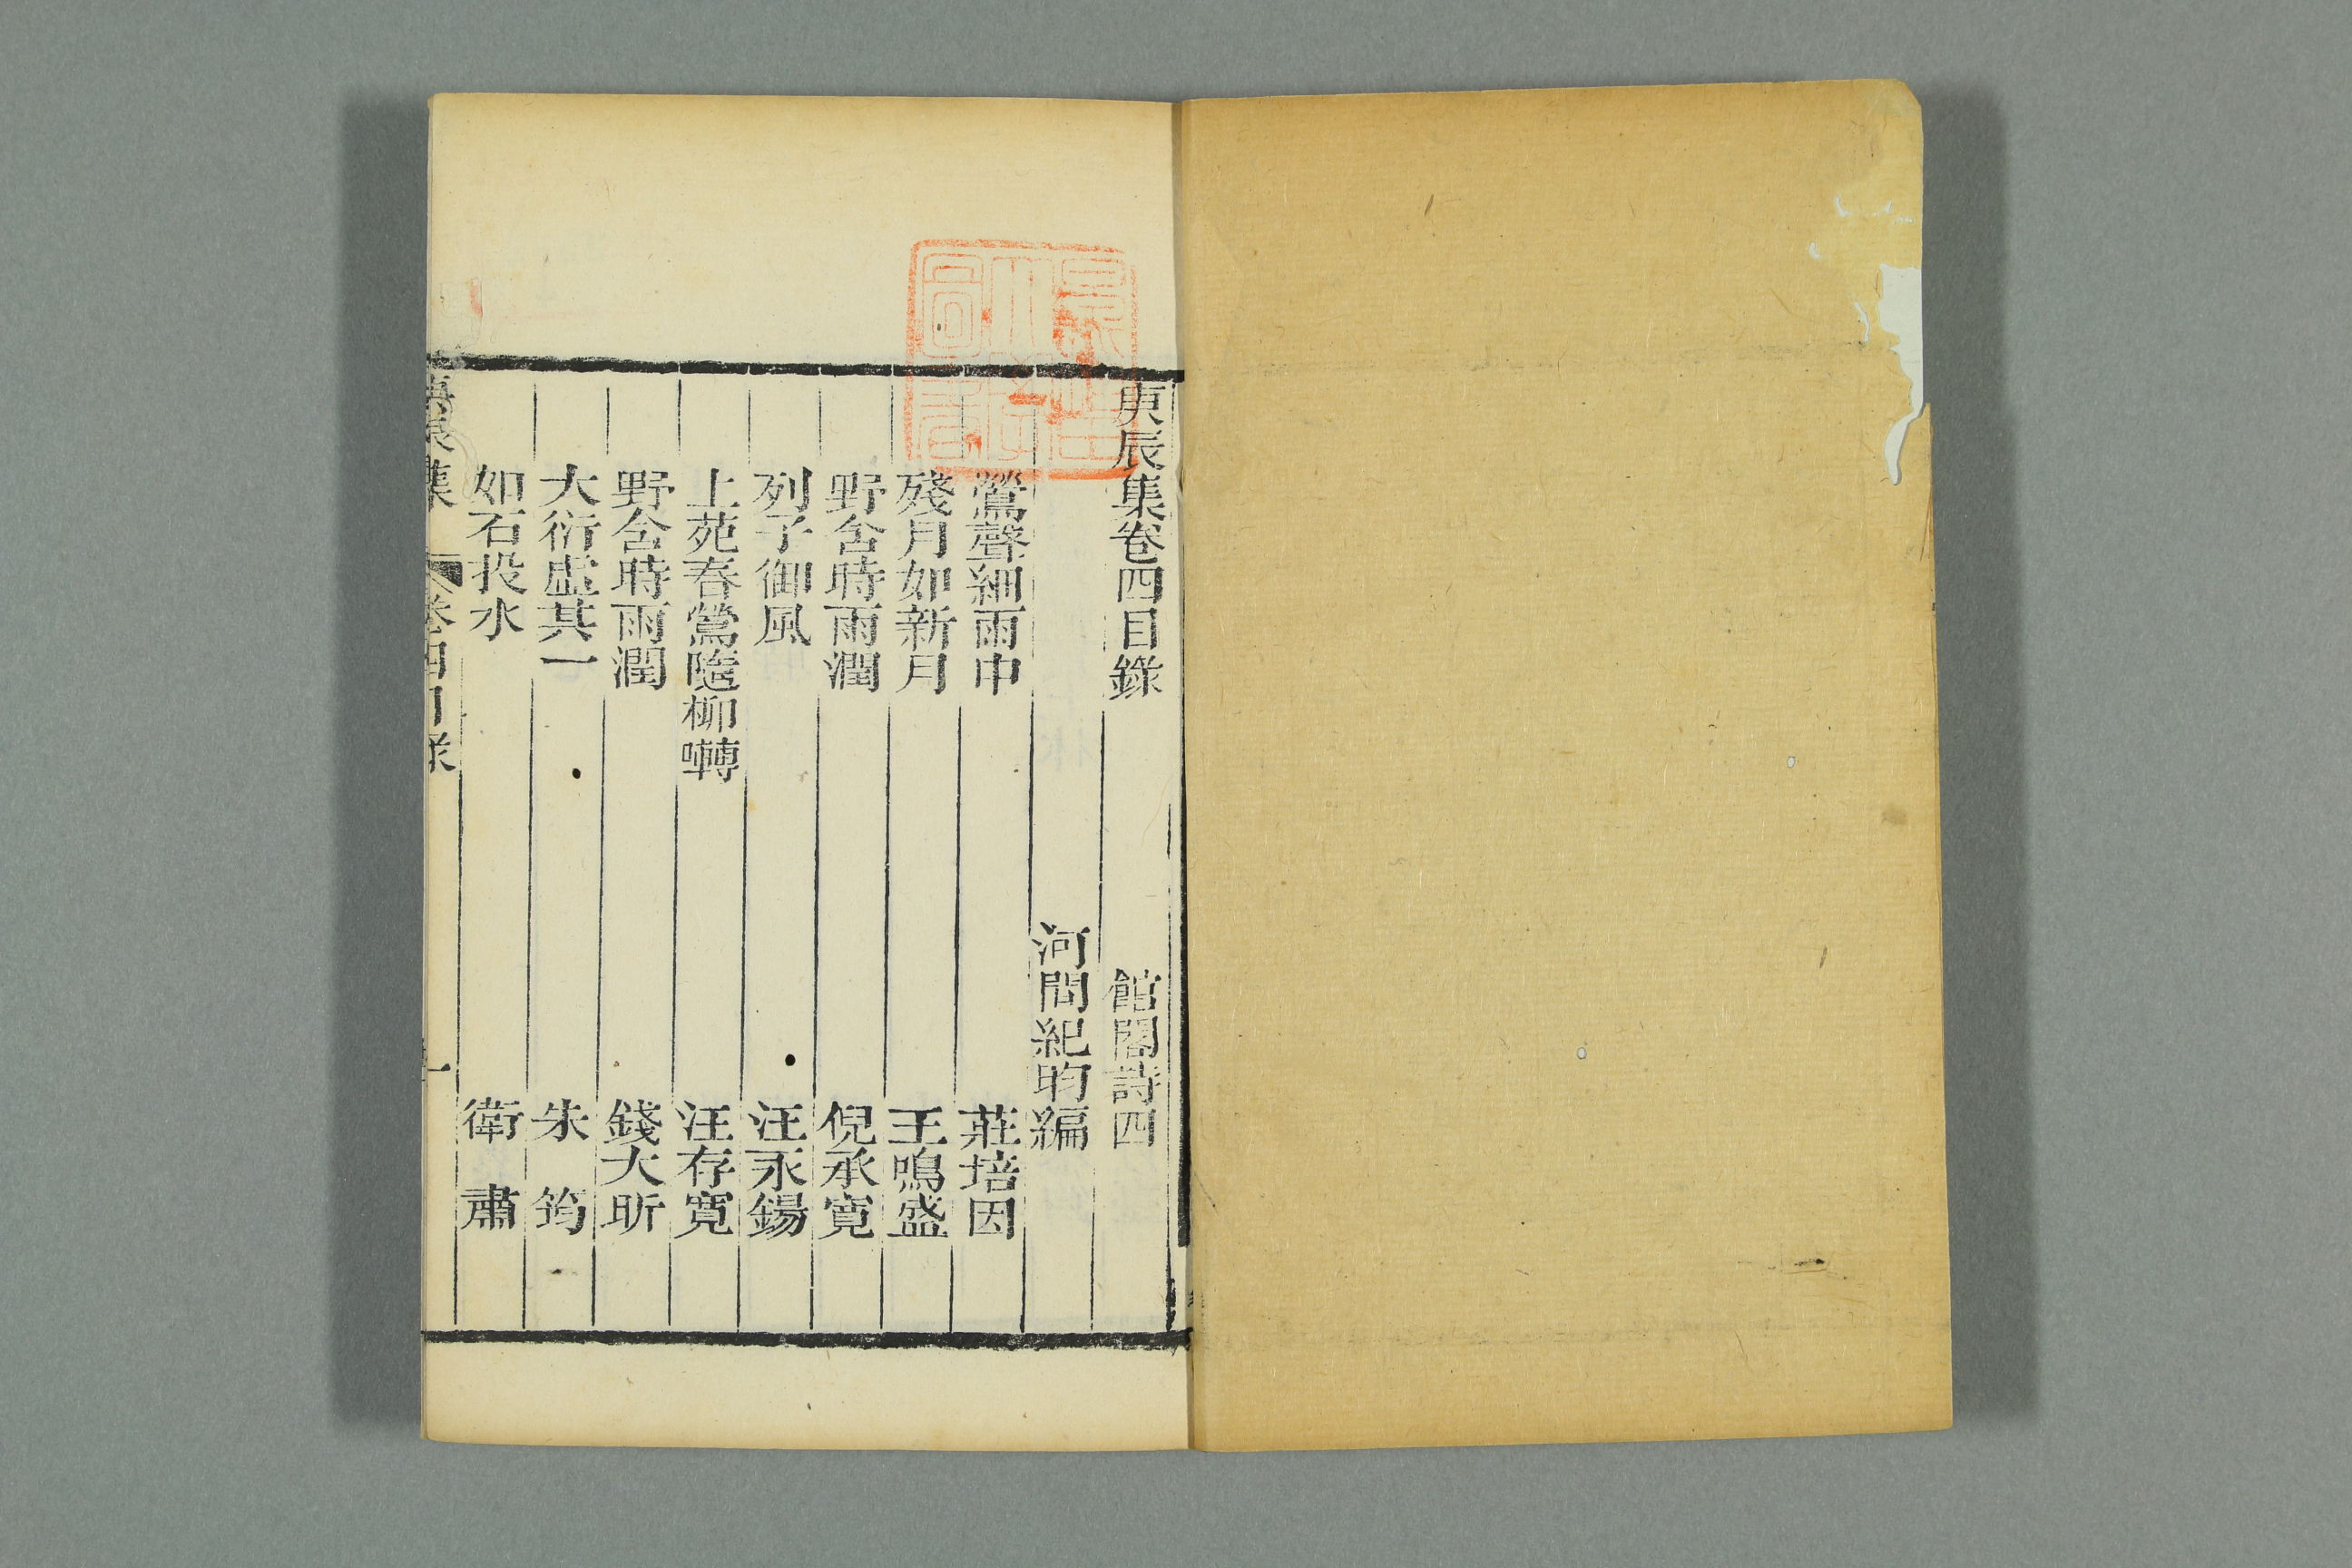 庚辰集卷四目錄 館閣詩四
河間紀昀編
鶯聲細雨中 莊培因
殘月如新月 王鳴盛
野含時雨潤 倪承寬
列子御風 汪永鍚
上苑春鶯隨柳囀 汪存寬
野含時雨潤 錢大昕
大衍虛其一 朱筠
如石投水 衛肅
庚辰集 卷四目錄 一